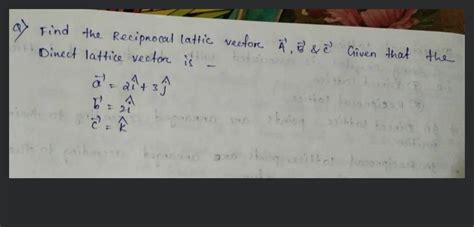 Q) Find the Reciprocal lattic vector A⃗, B⃗ & C⃗ Given that the
Direct lattice vector is –
a⃗ = 2î + 3ĵ
b⃗ = 2î
c⃗ = k̂